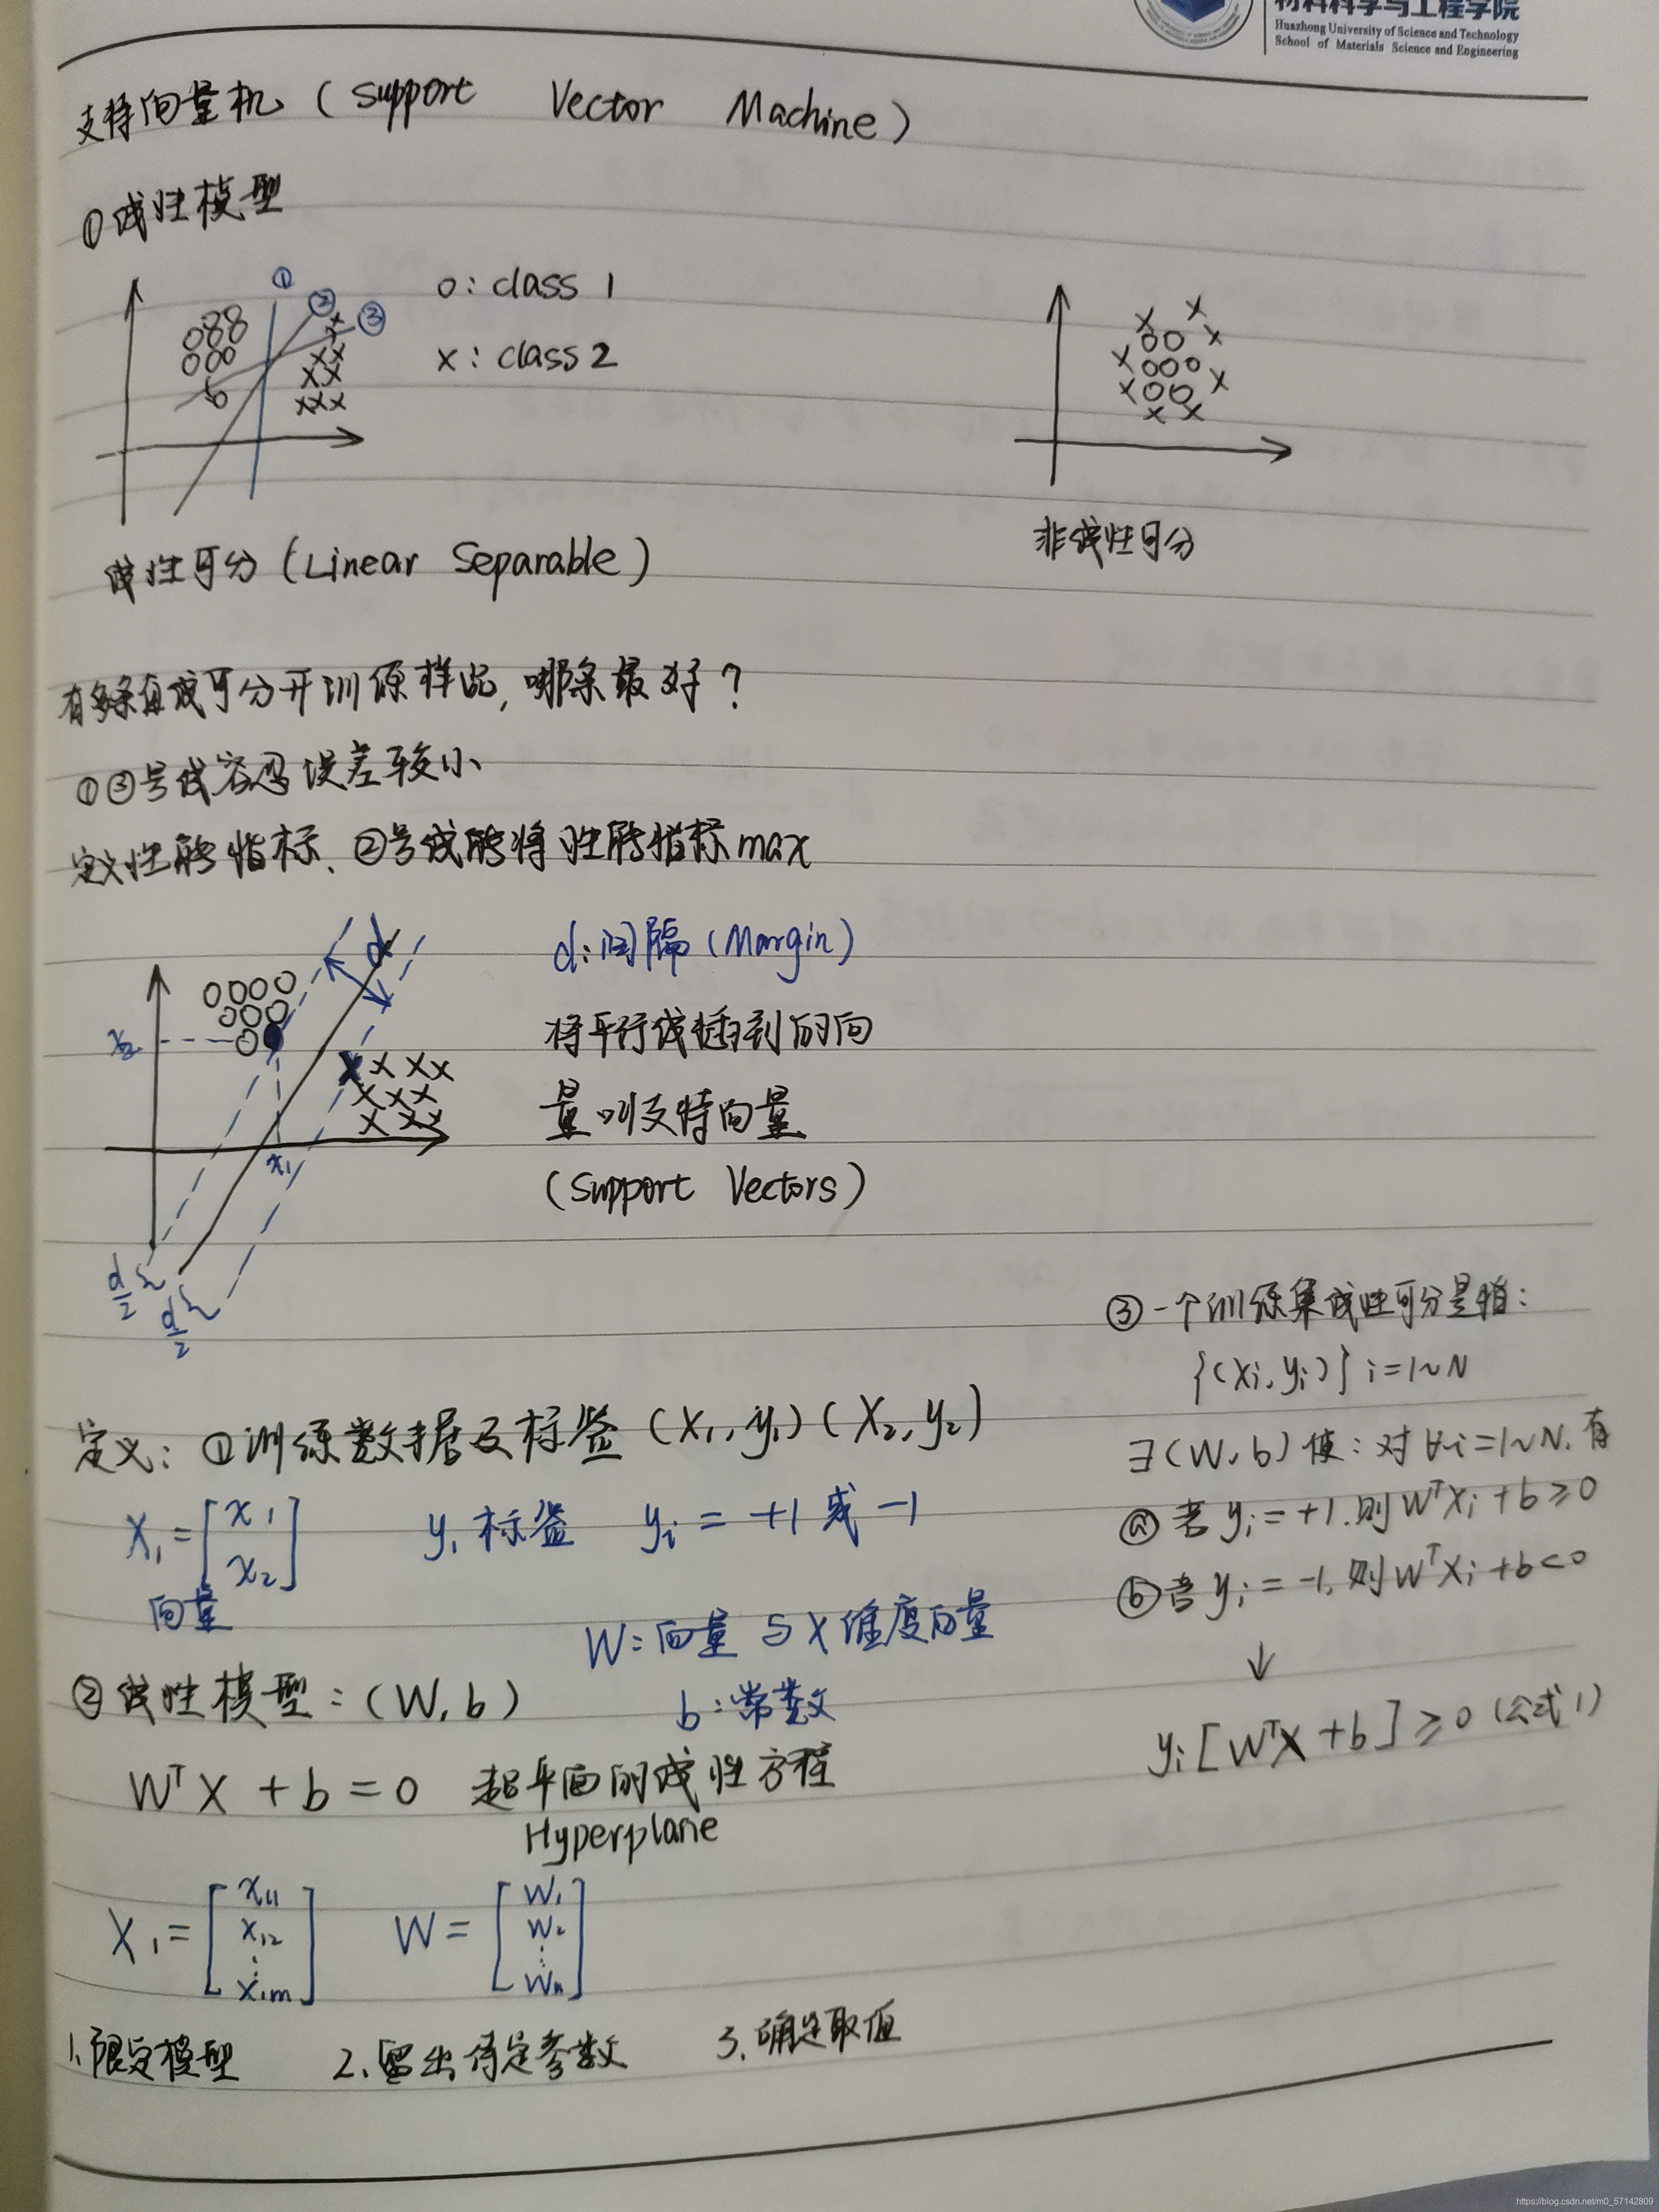 材料科学与工程学院
Huazhong University of Science and Technology
School of Materials Science and Engineering
支持向量机 (Support Vector Machine)
① 线性模型
① ② ③
o: class 1
x: class 2
线性可分 (Linear Separable)
非线性可分
有多条直线可分开训练样品, 哪条最好?
①③号线容忍误差较小
定义性能指标、②号线能将性能指标max
d
x₂
x₁
d/2
d/2
d: 间隔 (Margin)
将平行线插到的向
量叫支持向量
(Support Vectors)
定义: ①训练数据及标签 (X₁, y₁) (X₂, y₂)
X₁ = [x₁ x₂]
向量
y₁ 标签 yᵢ = +1 或 -1
②线性模型: (W, b)
W: 向量 与 X 维度向量
b: 常数
Wᵀ X + b = 0 超平面的线性方程
Hyperplane
X₁ = [x₁₁ x₁₂ ⋮ x₁m]
W = [W₁ W₂ ⋮ Wn]
1、限定模型 2、留出待定参数 3、确定取值
③ 一个训练集线性可分是指:
{(Xi, yi)} i=1~N
∃(W, b) 使: 对∀i=1~N, 有
ⓐ 若 yi = +1. 则 WᵀXi + b ≥ 0
ⓑ 若 yi = -1, 则 WᵀXi + b < 0
↓
yi [WᵀX + b] ≥ 0 (公式1)
https://blog.csdn.net/m0_57142809